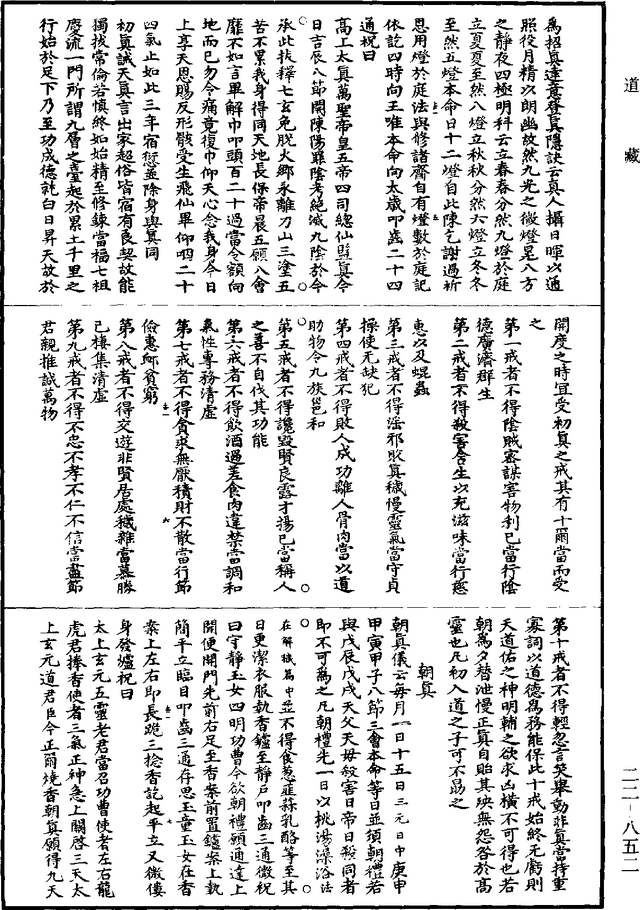 道藏
為招真達意登真隱訣云真人攝日暉以通
照役月精以朗幽故然九光之微燈晃八方
之靜夜四極明科云立春春分然九燈於庭
立夏夏至然八燈立秋秋分然六燈立冬冬
至然五燈本命日十二燈自此陳乞謝過祈
恩用燈於庭法與修諸齋自有燈數於庭記
依訖四時向王唯本命向太歲叩齒二十四
通祝曰
高上太真萬聖帝皇五帝四司總仙監真今
日吉辰八節開陳陽罪陰考絕滅九陰於今
永此拔釋七玄免脫火鄉永離刀山三塗五
苦不累我身得同天地長保帝晨五願八會
靡不如言畢解巾叩頭百二十過當令額向
地而已勿令痛竟復巾仰天心念我身今日
上享天恩賜反形骸受生飛仙畢仰咽二十
四氣止如此三年宿愆並除身與真同
初真誡天真言出家超俗皆宿有良契故能
獨拔常倫若慎終如始精至修鍊當福七祖
慶流一門所謂九層之臺起於累土千里之
行始於足下乃至功成德就白日昇天故於
開度之時宜受初真之戒其有十爾當而受
之
第一戒者不得陰賊密謀害物利己當行陰
德廣濟群生
第二戒者不得殺害含生以充滋味當行慈
惠以及蜫蟲
第三戒者不得淫邪敗真穢慢靈氣當守貞
操使无缺犯
第四戒者不得敗人成功離人骨肉當以道
助物令九族邕和
第五戒者不得讒毀賢良露才揚己當稱人
之善不自伐其功能
第六戒者不得飲酒過差食肉違禁當調和
氣性專務清虛
第七戒者不得貪求無厭積財不散當行節
儉惠卹貧窮
第八戒者不得交遊非賢居處穢雜當慕勝
己棲集清虛
第九戒者不得不忠不孝不仁不信當盡節
君親推誠萬物
第十戒者不得輕忽言笑舉動非真當持重
寡詞以道德為務能保此十戒始終无虧則
天道佑之神明輔之欲求凶橫不可得也若
朝為夕替泄慢正真自貽其殃無怨咎於高
靈也凡初入道之子可不勗之
朝真
朝真儀云每月一日十五日三元日中庚申
甲寅甲子八節三會本命等日並須朝禮若
與戊辰戊戌天父天母殺害日帝日殺同者
即不可為之凡朝禮先一日以桃湯澡浴法
在解穢篇中並不得食葱韮蒜乳酪等至其
日更潔衣服執香鑪至靜戶叩齒三通微祝
曰守靜玉女四明功曹今欲朝禮願通達上
聞便開門先前右足至香案前置鑪案上執
簡平立臨目叩齒三通存思玉童玉女在香
案上左右即長跪三捻香訖起平立又微僂
身發爐祝曰
太上玄元五靈老君當召功曹使者左右龍
虎君捧香使者三氣正神急上關啓三天太
上玄元道君臣今正爾燒香朝真願得九天
二二一-八五二